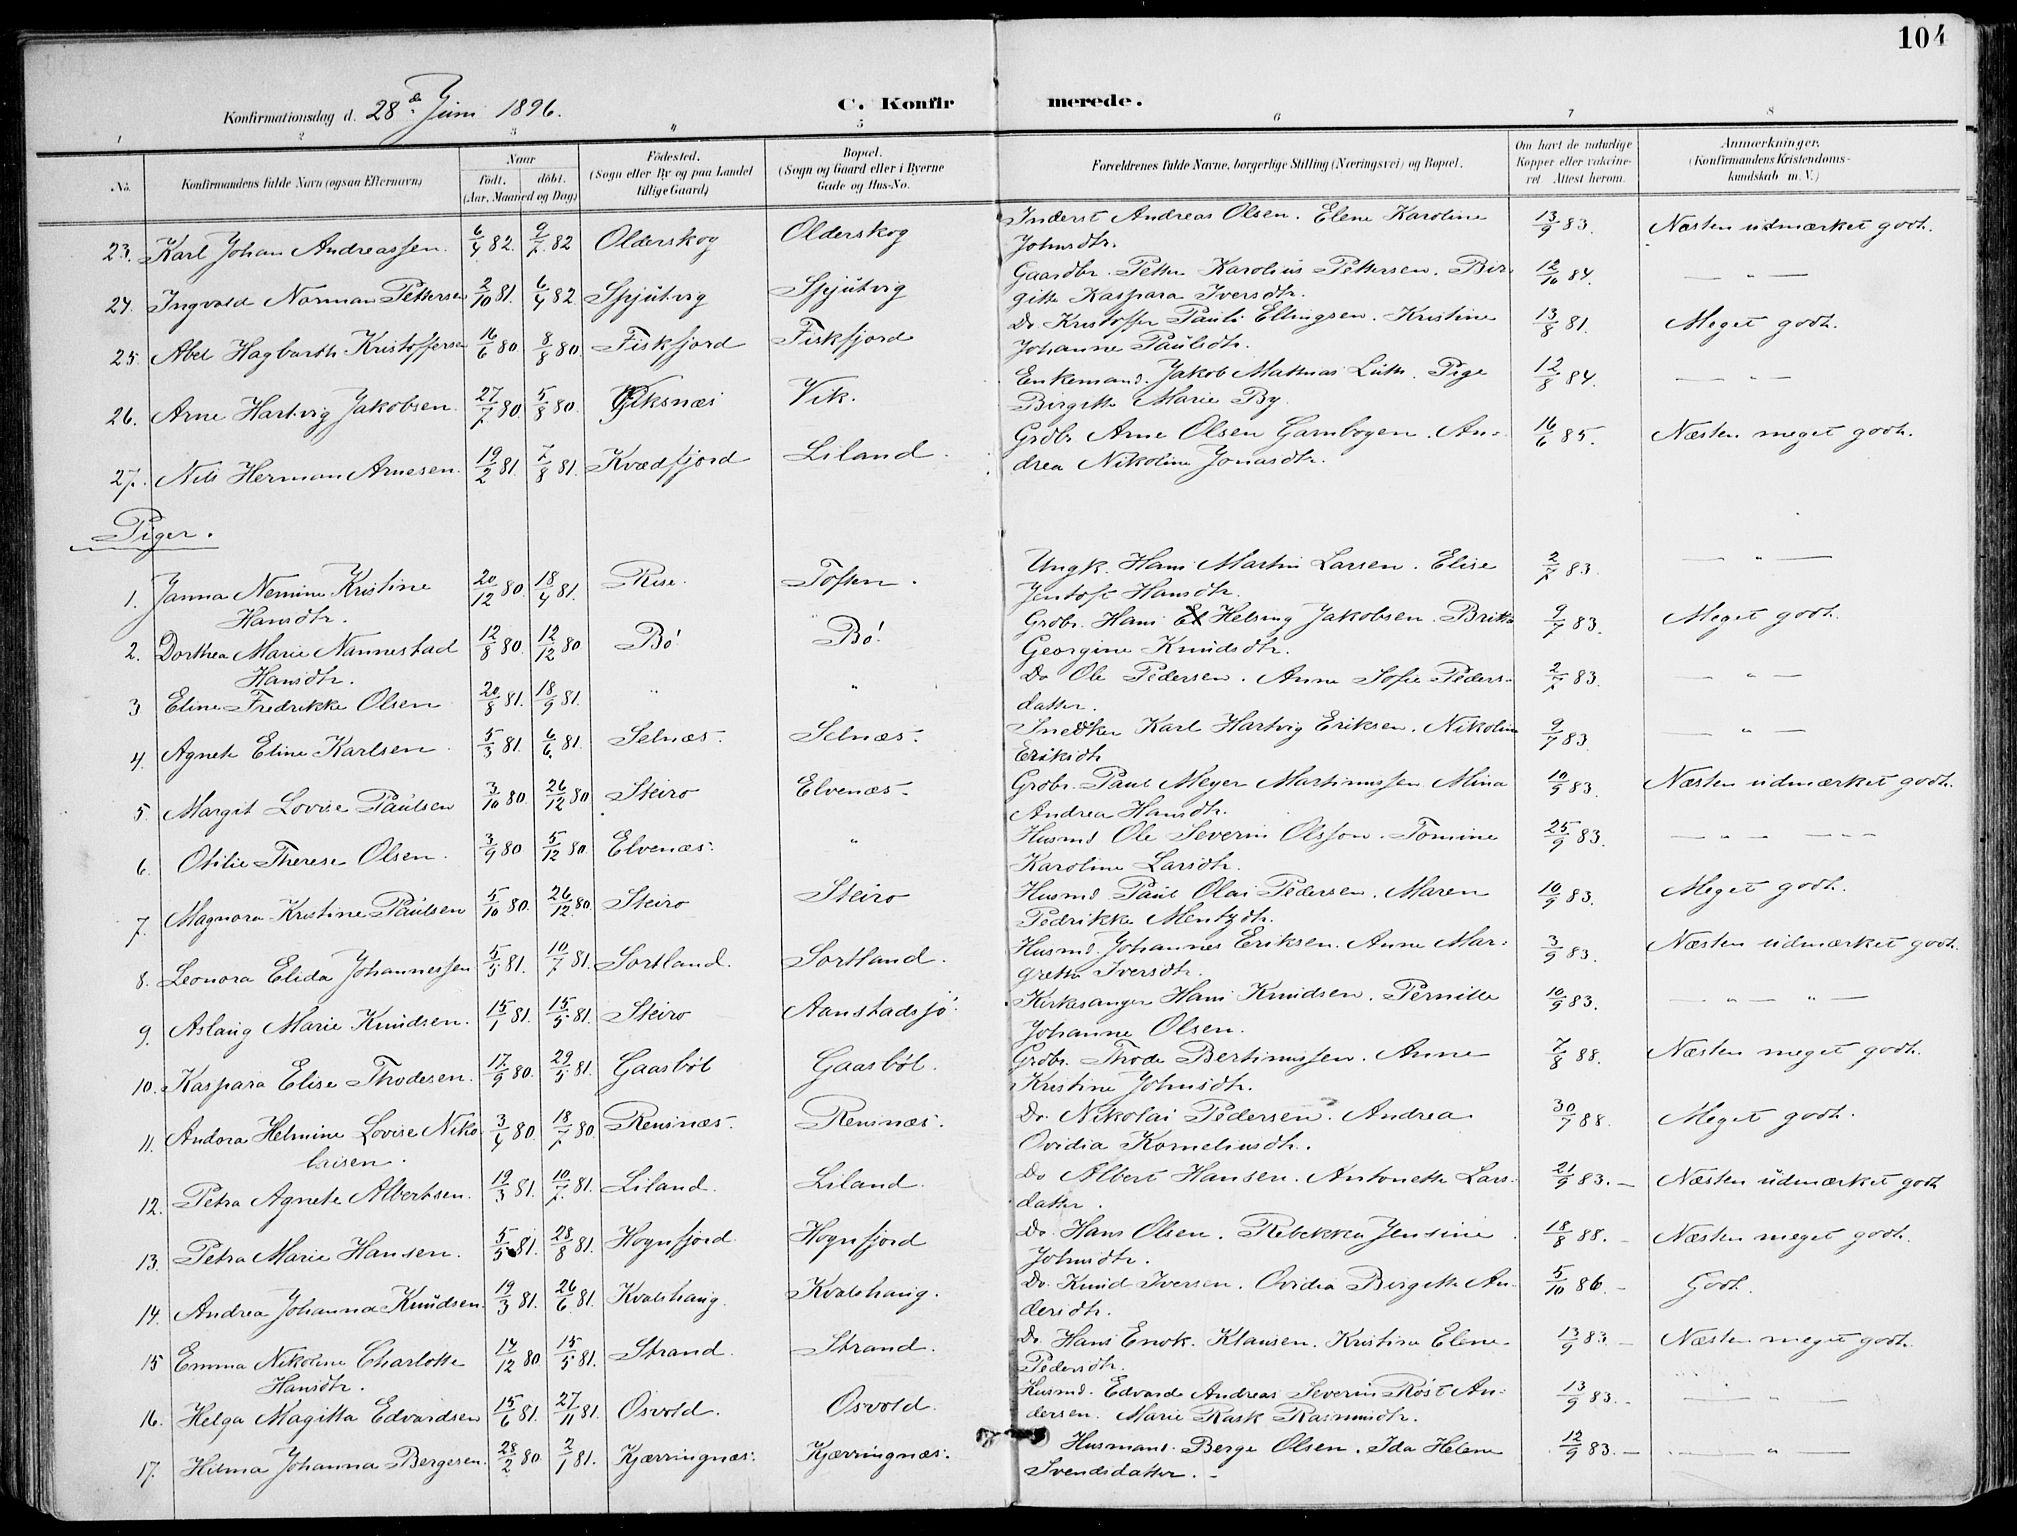 104
Konfirmationsdag d. 28de Juni 1896.
C. Konfir merede.
1 2 3 4 5 6 7 8
No. Konfirmandens fulde Navn (ogsaa Efternavn) Naar Født. døbt. (Aar, Maaned og Dag) Fødested. (Sogn eller By og paa Landet tillige Gaard) Bopæl. (Sogn og Gaard eller i Byerne Gade og Hus-No. Forældrenes fulde Navne, borgerlige Stilling (Næringsvei) og Bopæl. Om havt de naturlige Kopper eller vakcineret Attest herom. Anmærkninger. (Konfirmandens Kristendomskundskab m. V.)
23. Karl Johan Andreassen. 6/4 82. 9/7 82 Olderskog Olderskog Inderst Andreas Olsen. Elene Karoline 13/9 83. Næsten udmærket godt.
Johnsdtr.
24. Ingvald Norman Pettersen 2/10 81. 6/4 82 Spjutvig Spjutvig Gaardbr. Petter Karolius Pettersen. Bir- 12/10 84. — " —
gitte Kaspara Iversdtr.
25 Abel Hagbarth Kristoffersen 16/6 80 8/8 80 Fiskfjord Fiskfjord Do. Kristoffer Pauli Ellingsen. Kristine 13/8 81. Meget godt.
Johanne Paulsdtr.
26. Arne Hartvig Jakobsen. 27/7 80 5/8 80. Viksnæs Vik. Enkemand. Jakob Mathias Luth. Pige 12/8 84. — " —
Birgitte Marie By.
27. Nils Herman Arnesen. 19/2 81. 7/8 81. Kvædfjord Liland. Grdbr. Arne Olsen Gambogen. An- 16/6 85. Næsten meget godt.
drea Nikoline Jonasdtr.
Piger.
1. Janna Nemine Kristine 20/12 80 18/4 81. Rise. Toften. Ungk. Hans Martin Larsen. Elise 2/7 83. — " —
Hansdtr. Jentoft Hansdtr.
2. Dorthea Marie Nannestad 12/8 80. 12/12 80 Bø! Bø! Grdbr. Hans El Helsing Jakobsen. Britha 9/7 83. Meget godt.
Hansdtr. Georgine Knudsdtr.
3 Eline Fredrikke Olsen 20/8 81. 18/9 81. " " Do Ole Pedersen. Anne Sofie Peders- 2/7 83. — " —
datter.
4. Agnete Eline Karlsen. 5/3 81. 6/6 81. Selnæs. Selnæs. Snedker Karl Hartvig Eriksen. Nikoline 9/7 83. — " —
Eriksdtr
5. Margit Lovise Paulsen 3/10 80. 26/12 80 Steiro Elvenæs. Grdbr. Paul Meyer Martinussen. Mina 10/9 83. Næsten udmærket godt.
Andrea Hansdtr.
6. Otilie Therese Olsen. 3/9 80 5/12 80. Elvenæs. " Husmd Ole Severin Olsson. Tomine 25/9 83. — " — — — —
Karoline Larsdtr.
7. Magnora Kristine Paulsen 5/10 80. 26/12 80. Steiro Steiro Husmd Paul Olai Pedersen. Maren 10/9 83. Meget godt.
Pedrikke Mentzdtr.
8. Leonora Elida Johannessen 5/5 81. 10/7 81. Sortland. Sortland. Husmd. Johannes Eriksen. Anne Mar- 3/9 83. Næsten udmærket godt.
grethe Iversdtr.
9. Aslaug Marie Knudsen. 15/1 81. 15/5 81. Steiro Aanstadsjø. Kirkesanger Hans Knudsen. Pernille 10/9 83. — " — " —
Johanne Olsen.
10. Kaspara Elise Thodesen. 17/9 80. 29/5 81. Gaasbøl Gaasbøl. Grdbr. Thode Bertinussen. Anne 7/8 88. Næsten meget godt.
Kristine Johnsdtr.
11. Andora Helmine Lovise Niko- 3/4 80. 18/7 80 Rensnæs. Rensnæs. Do. Nikolai Pedersen. Andrea 30/7 88. Meget godt.
laisen. Ovidia Korneliusdtr.
12. Petra Agnete Albertsen. 19/3 81. 10/7 81. Liland. Liland. Do Albert Hansen. Antonette Lars- 21/9 83. — Næsten udmærket godt
datter.
13. Petra Marie Hansen. 5/5 81. 28/8 81. Hognfjord Hognfjord Do. Hans Olsen. Rebekka Jensine 18/8 88. — Næsten meget godt.
Johnsdtr.
14. Andrea Johanna Knudsen. 19/3 81. 26/6 81. Kvalshaug. Kvalshaug. Do. Knud Iversen. Ovidia Birgitte An- 5/10 86. — Godt.
dersdtr.
15 Emma Nikoline Charlotte 14/12 80 15/5 81. Strand. Strand. Do. Hans Enok. Klausen. Kristine Elene 13/9 83 — Næsten meget godt.
Hansdtr. Pedersdtr.
16. Helga Magitta Edvardsen 15/6 81. 27/11 81. Osvold. Osvold. Husmd. Edvard Andreas Severin Røst An- 13/9 83. — — " —
dersen. Marie Rask Rasmusdtr.
17. Hilma Johanna Bergesen. 28/2 80. 2/1 81. Kjærringnæs. Kjærringnæs. Husmand. Berge Olsen. Ida Helene 12/9 83. — — " —
Svendsdatter. —